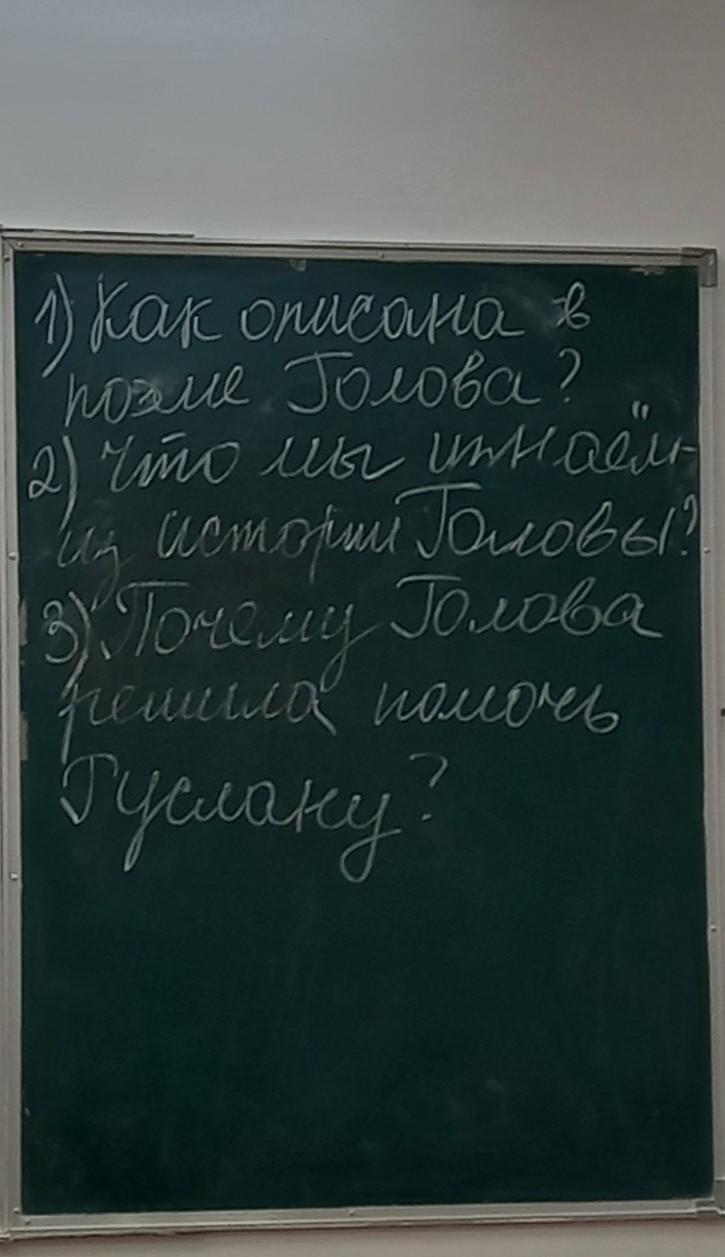 1) Как описана в
поэме Голова?
2) Что мы узнаём
из истории Головы?
3) Почему Голова
решила помочь
Руслану?